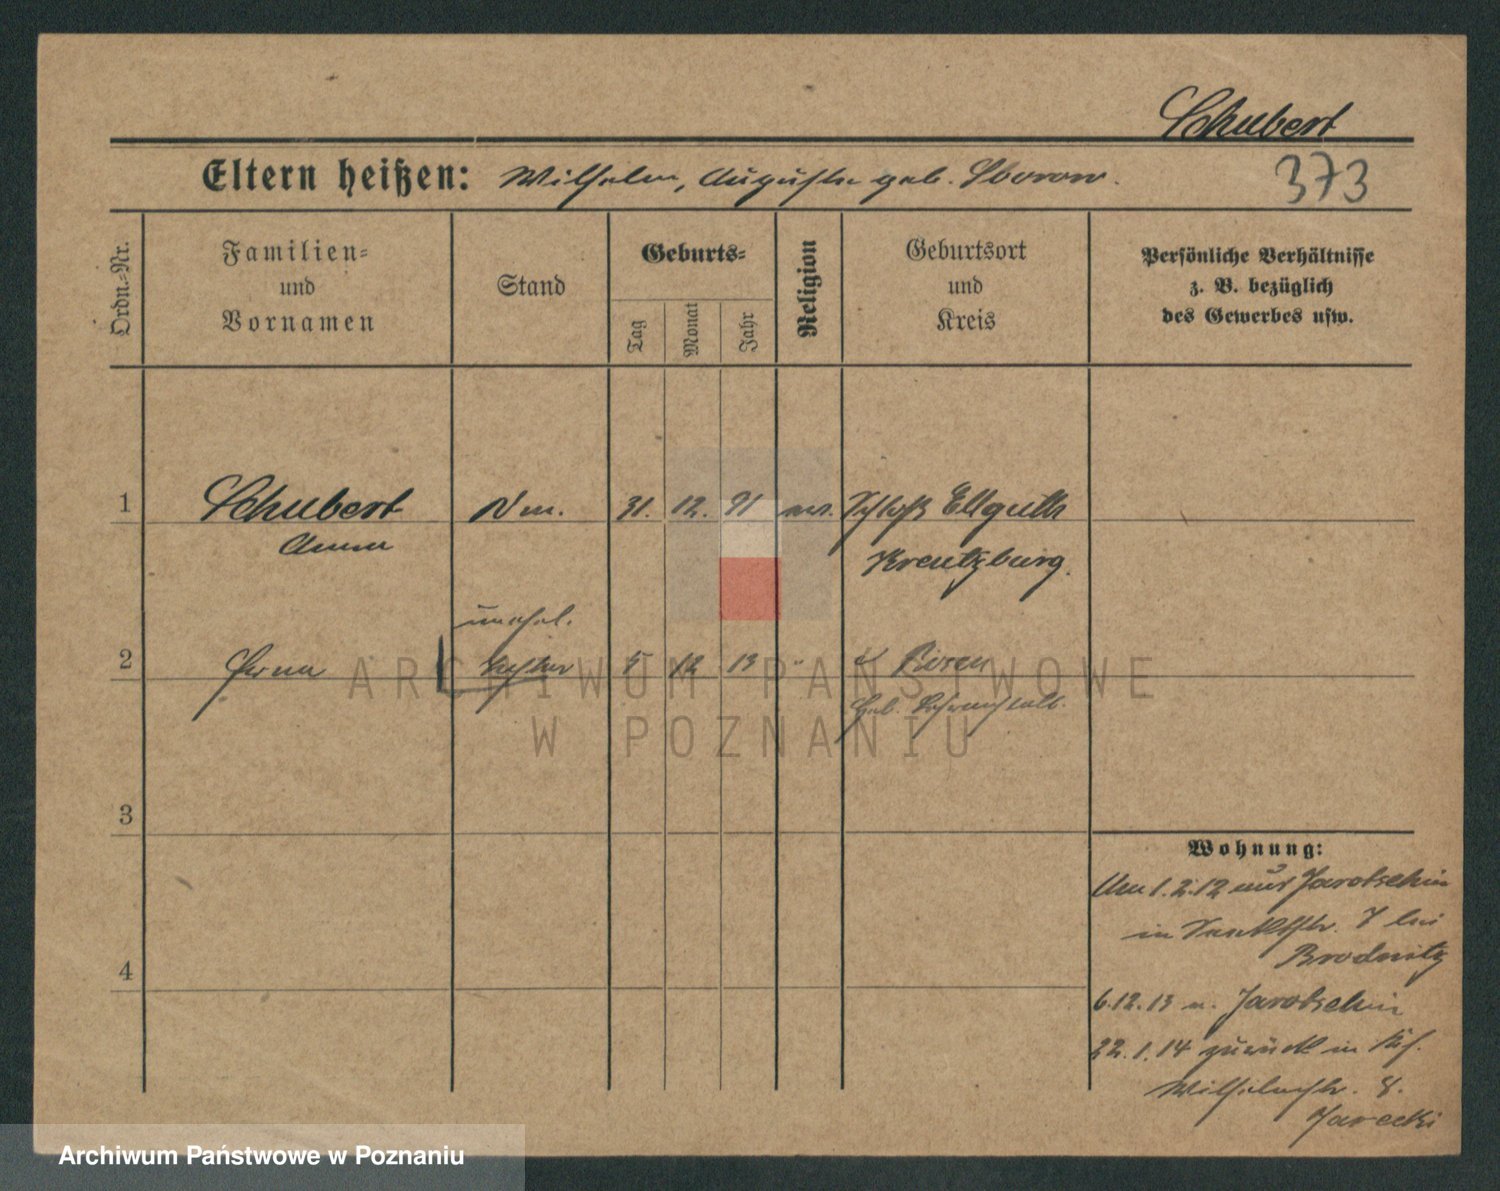 Schubert
Eltern heißen: Wilhelm, Auguste geb.
373
Ordn.-Nr.
Familien-
und
Vornamen
Stand
Geburts-
Tag
Monat
Jahr
Religion
Geburtsort
und
Kreis
Persönliche Verhältnisse
z. B. bezüglich
des Gewerbes usw.
1 Schubert 31. 12. 91 Schloß Ellguth
Anna Kreutzburg.
unehel.
2 Tochter 5 12 13 Posen
ARCHIWUM PAŃSTWOWE
W POZNANIU
3
Wohnung:
Am 1.2.12 aus Jarotschin
in 7 bei
Brodnitz
4
6.12.13 n. Jarotschin
22.1.14 zurück in
Wilhelmstr. 8.
Jarecki
Archiwum Państwowe w Poznaniu